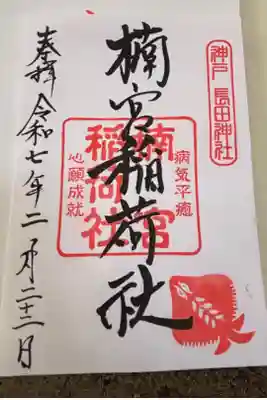 神戸 長田神社
楠宮稲荷社
病気平癒
楠宮
稲荷社
心願成就
奉拝 令和七年二月二十二日